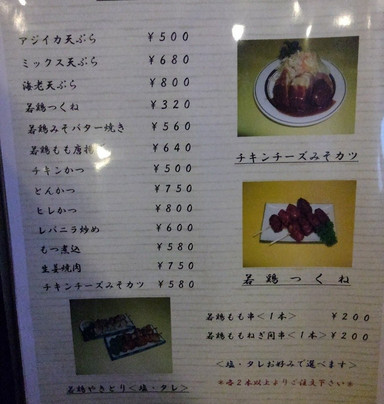 アジイカ天ぷら ￥500
ミックス天ぷら ￥680
海老天ぷら ￥800
若鶏つくね ￥320
若鶏みそバター焼き ￥560
若鶏もも唐揚 ￥640
チキンかつ ￥500
とんかつ ￥750
ヒレかつ ￥800
レバニラ炒め ￥600
もつ煮込 ￥580
生姜焼肉 ￥750
チキンチーズみそカツ ￥580
若鶏やきとり<塩・タレ>
チキンチーズみそカツ
若鶏つくね
若鶏もも串<1本> ￥200
若鶏ももねぎ間串<1本> ￥200
<塩・タレお好みで選べます>
※各2本以上よりご注文下さい※